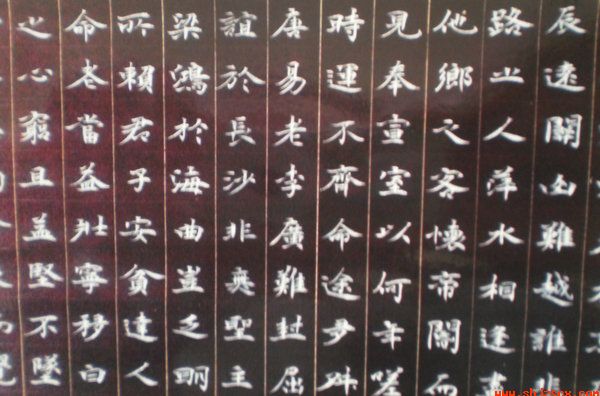 辰遠關山難越誰
路之人萍水相逢盡
他鄉之客懷帝閽而
見奉宣室以何年嗟
時運不齊命途多舛
唐易老李廣難封屈
誼於長沙非無聖主
梁鴻於海曲豈乏明
所賴君子安貧達人
命老當益壯寧移白
之心窮且益堅不墜